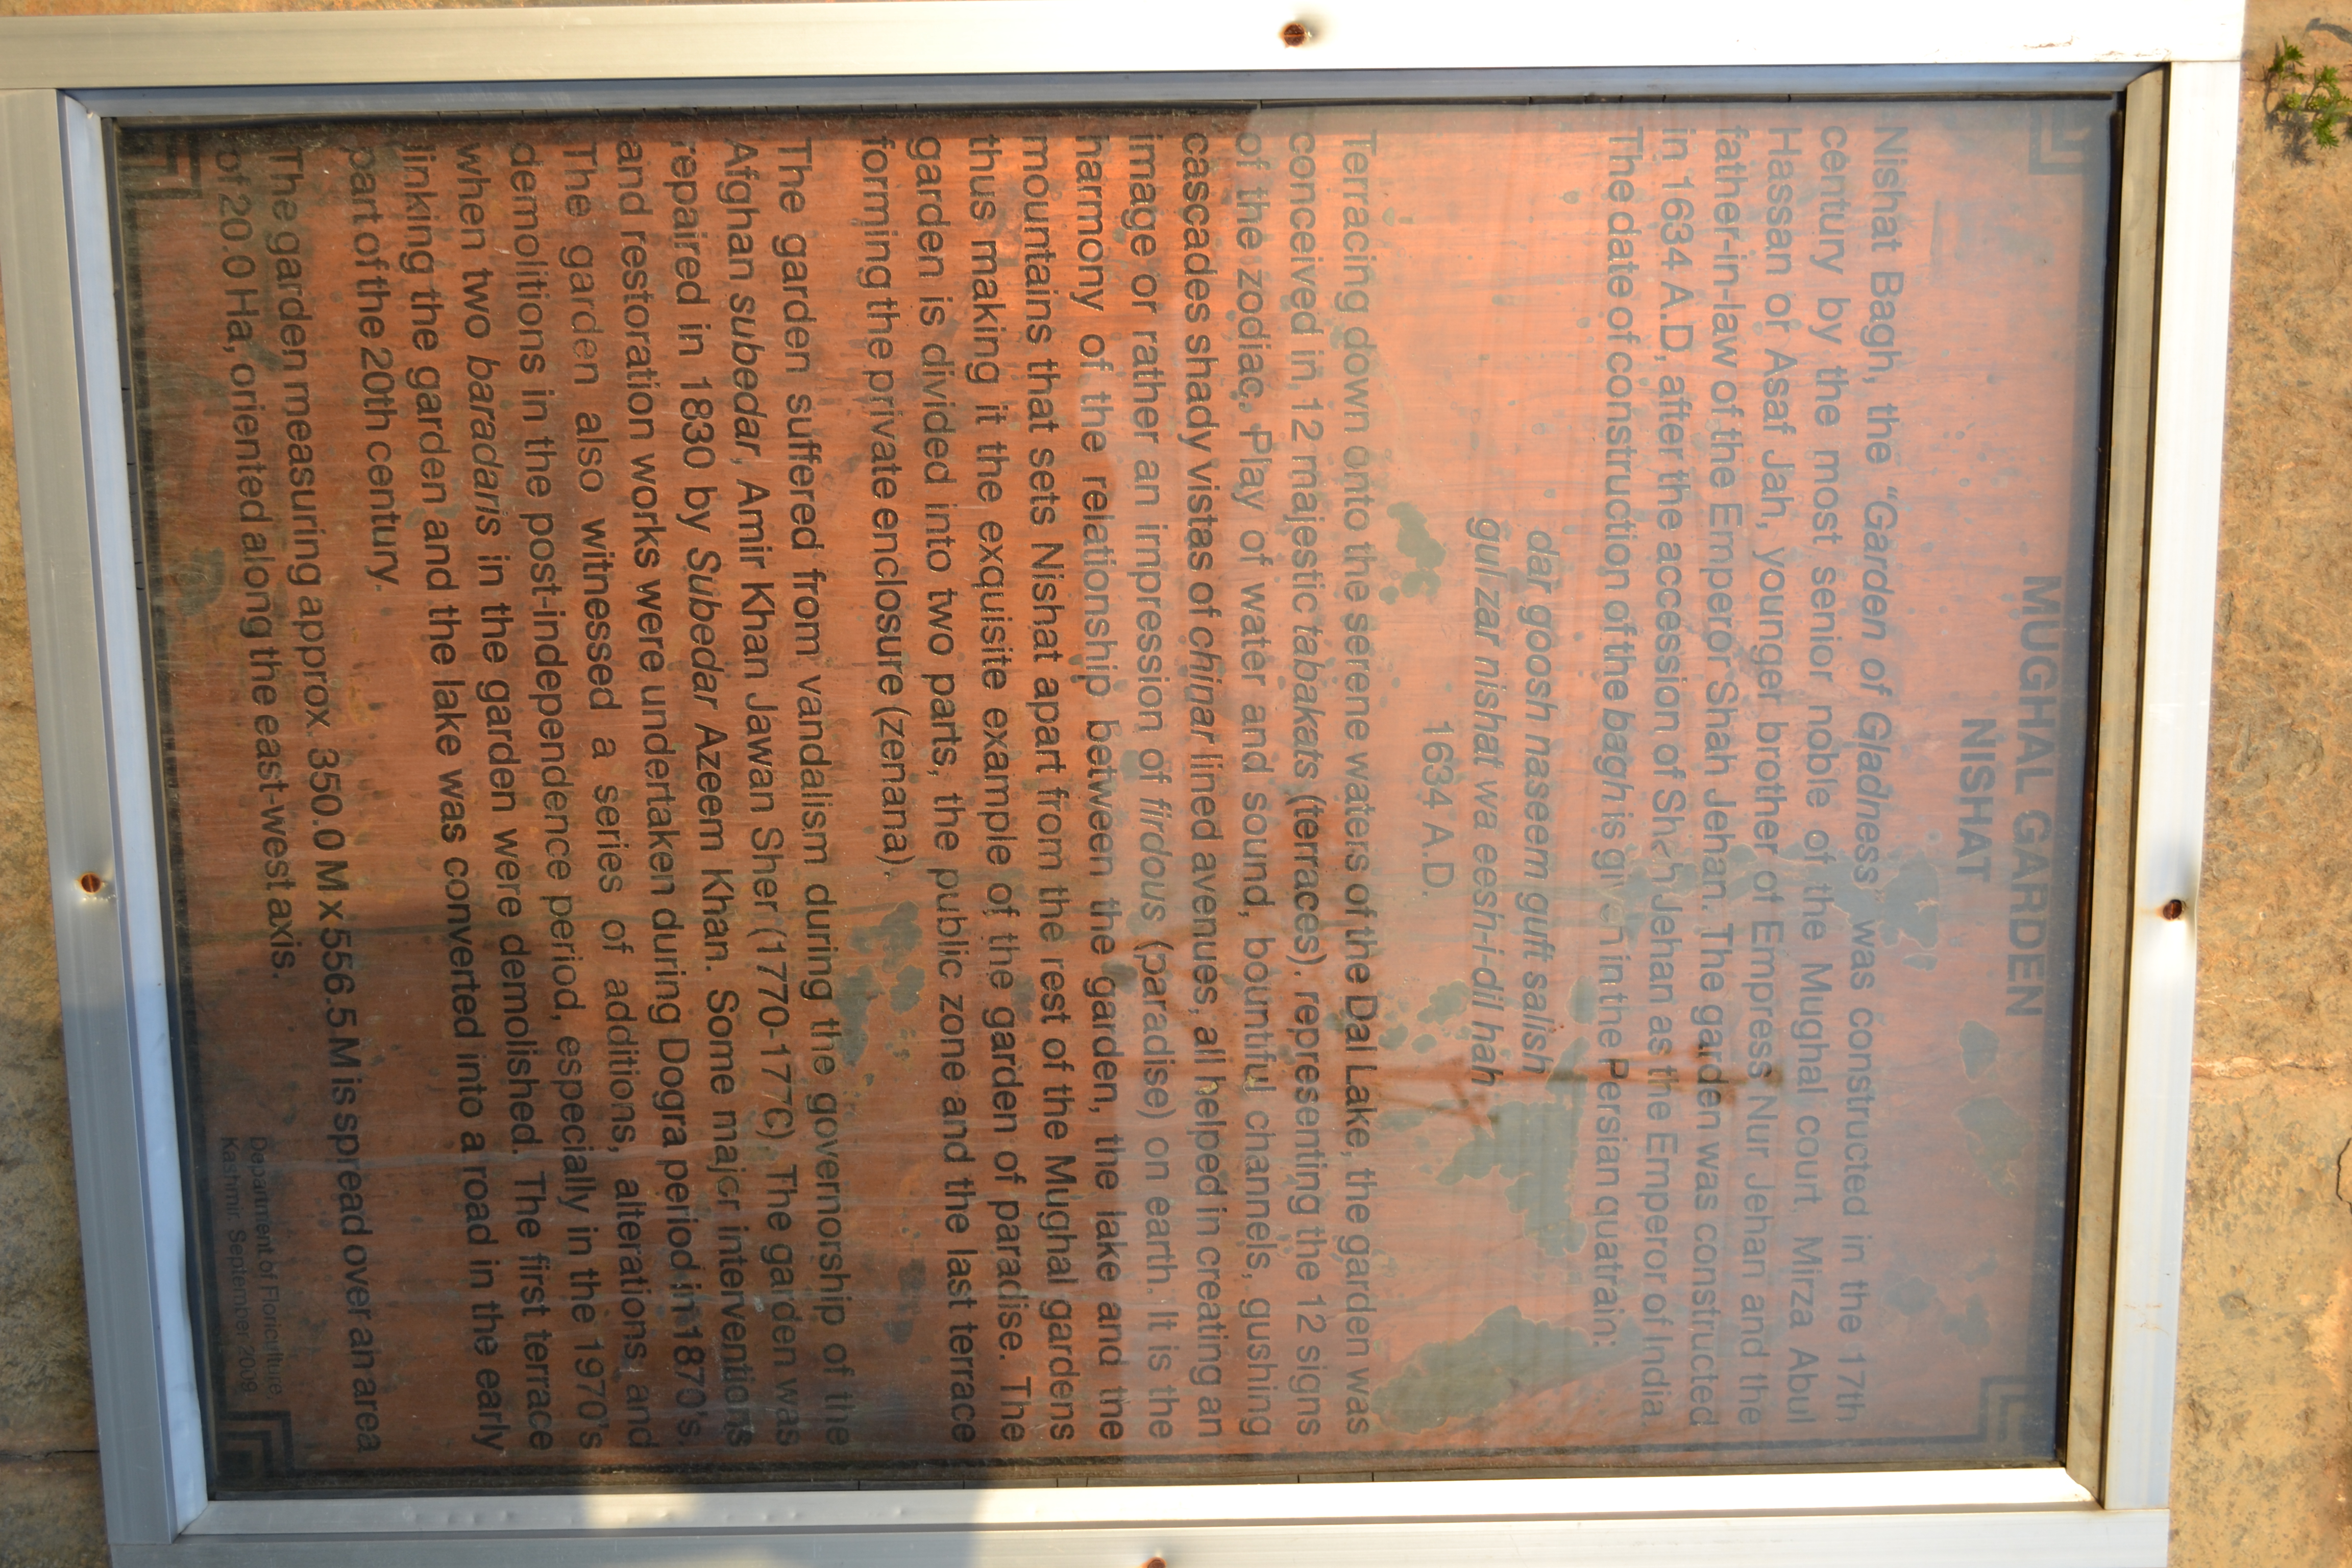 MUGHAL GARDEN
NISHAT
Nishat Bagh, the "Garden of Gladness" was constructed in the 17th
century by the most senior noble of the Mughal court, Mirza Abul
Hassan or Asaf Jah, younger brother of Empress Nur Jehan and the
father-in-law of the Emperor Shah Jehan. The garden was constructed
in 1634 A.D, after the accession of Shah Jehan as the Emperor of India.
The date of construction of the bagh is given in the Persian quatrain:
dar goosh naseem guft salish
gul zar nishat wa eesh-i-dil hah
1634 A.D.
Terracing down onto the serene waters of the Dal Lake, the garden was
conceived in 12 majestic tabakats (terraces). representing the 12 signs
of the zodiac. Play of water and sound, bountiful channels, gushing
cascades shady vistas of chinar lined avenues, all helped in creating an
image or rather an impression of firdous (paradise) on earth. It is the
harmony of the relationship between the garden, the lake and the
mountains that sets Nishat apart from the rest of the Mughal gardens
thus making it the exquisite example of the garden of paradise. The
garden is divided into two parts, the public zone and the last terrace
forming the private enclosure (zenana).
The garden suffered from vandalism during the governorship of the
Afghan subedar, Amir Khan Jawan Sher (1770-1776) The garden was
repaired in 1830 by Subedar Azeem Khan. Some major interventions
and restoration works were undertaken during Dogra period in 1870's.
The garden also witnessed a series of additions, alterations and
demolitions in the post-independence period, especially in the 1970's
when two baradaris in the garden were demolished. The first terrace
linking the garden and the lake was converted into a road in the early
part of the 20th century.
The garden measuring approx. 350.0 M x 556.5 M is spread over an area
of 20.0 Ha, oriented along the east-west axis.
Department of Floriculture
Kashmir. September 2009